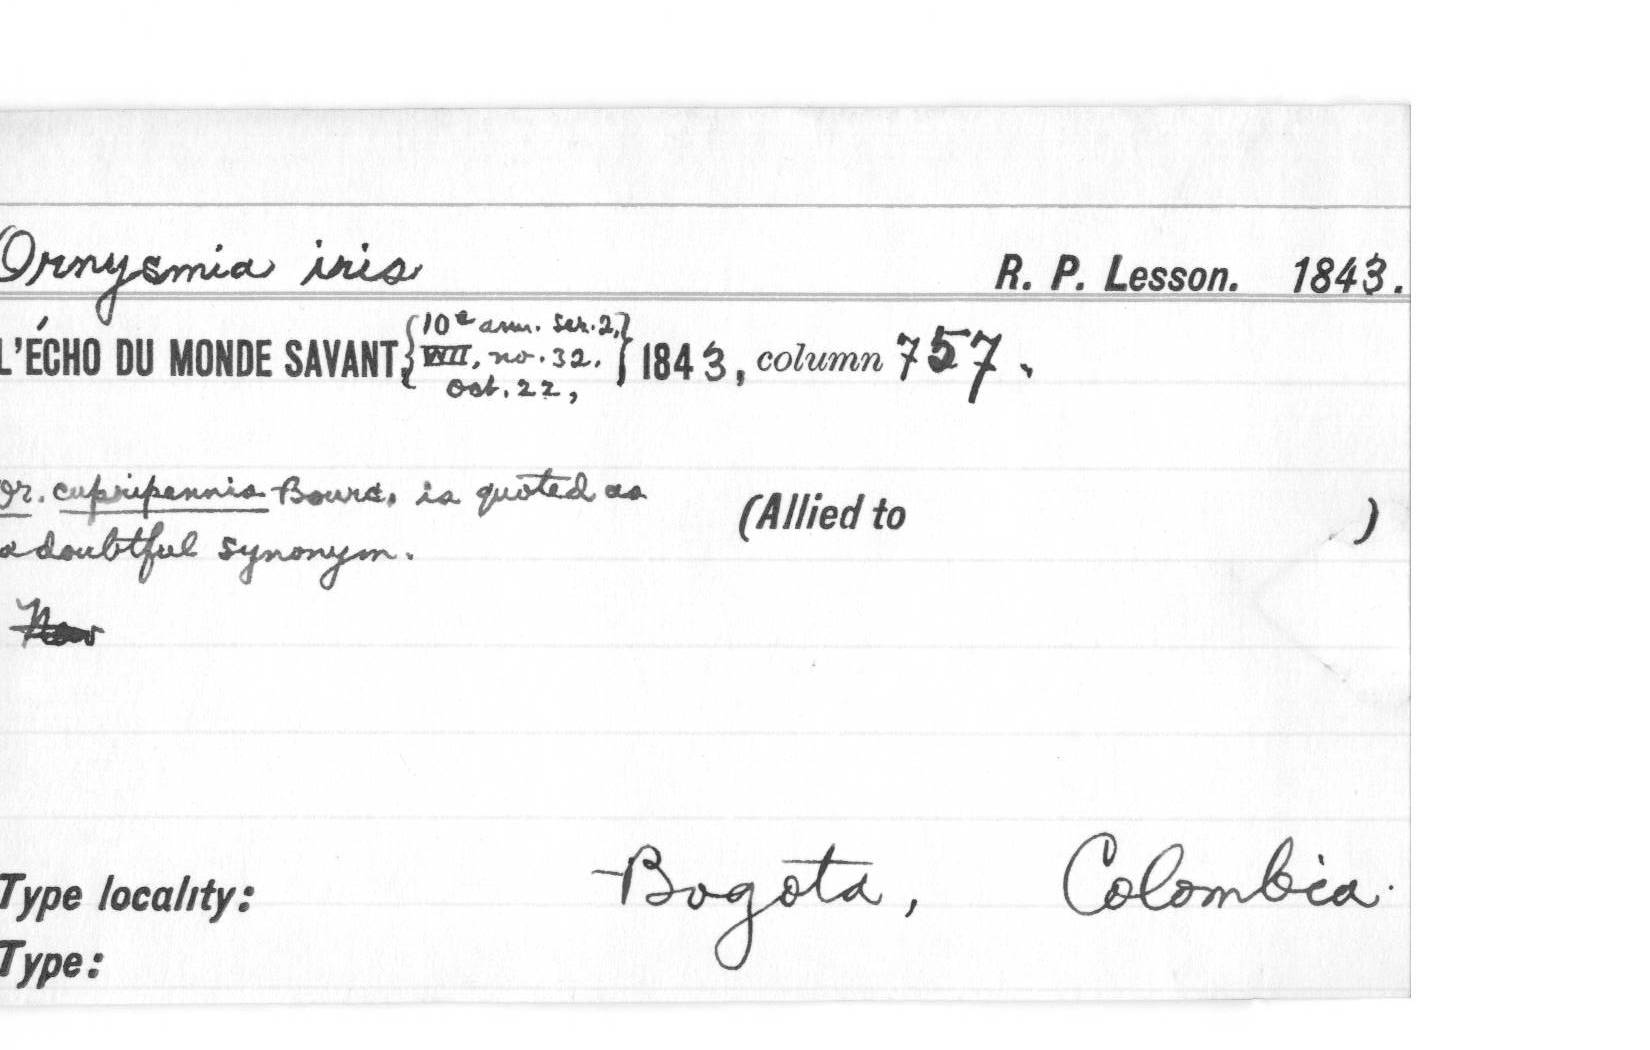 Ornysmia iris R. P. Lesson. 1843.
L'ÉCHO DU MONDE SAVANT, {10e ann. Ser. 2,} 1843, column 757.
VIII, no. 32.
Oct. 22,
Or. cupripennis Bourc. is quoted as
a doubtful synonym.
(Allied to )
New
Type locality: Bogota, Colombia.
Type: